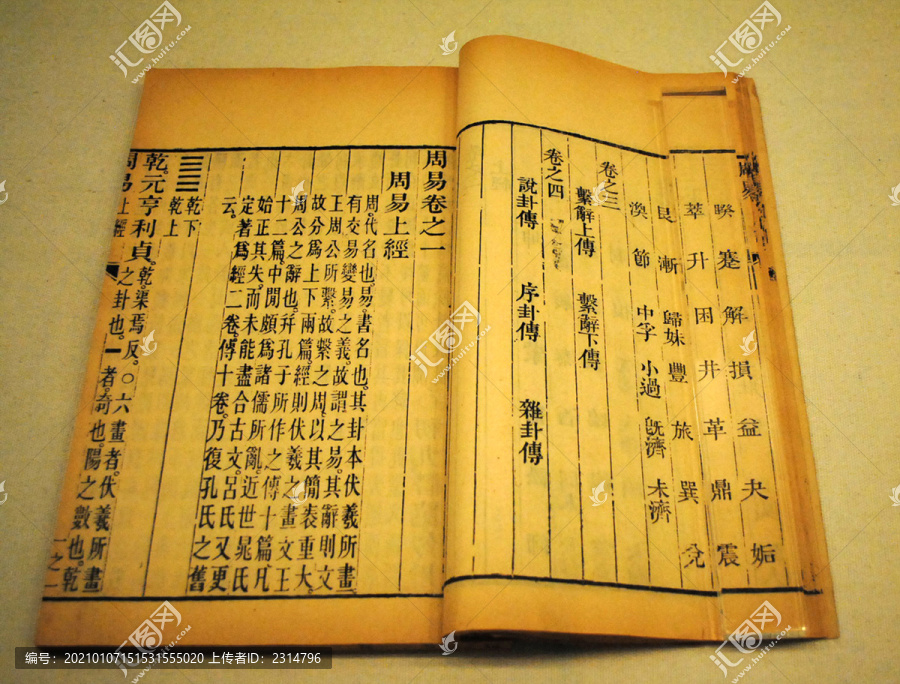 周易
睽 蹇 解 損 益 夬 姤
萃 升 困 井 革 鼎 震
艮 漸 歸妹 豐 旅 巽 兌
渙 節 中孚 小過 旣濟 未濟
卷之三
繫辭上傳 繫辭下傳
卷之四
說卦傳 序卦傳 雜卦傳
周易卷之一
周易上經
周。代名也。易。書名也。其卦本伏羲所畫。
有交易變易之義。故謂之易。其辭則文
王周公所繫。故繫之周。以其簡袠重大。
故分爲上下兩篇。經則伏羲之畫。文王
周公之辭也。幷孔子所作之傳十篇。凡
十二篇。中閒頗爲諸儒所亂。近世晁氏
始正其失。而未能盡合古文。呂氏又更
定著爲經二卷。傳十卷。乃復孔氏之舊
云。
乾下
乾上
乾。元亨利貞。乾。渠焉反。○六畫者。伏羲所畫
之卦也。一者。奇也。陽之數也。乾
周易上經 一之一
汇图网
www.huitu.com
编号：20210107151531555020 上传者ID：2314796